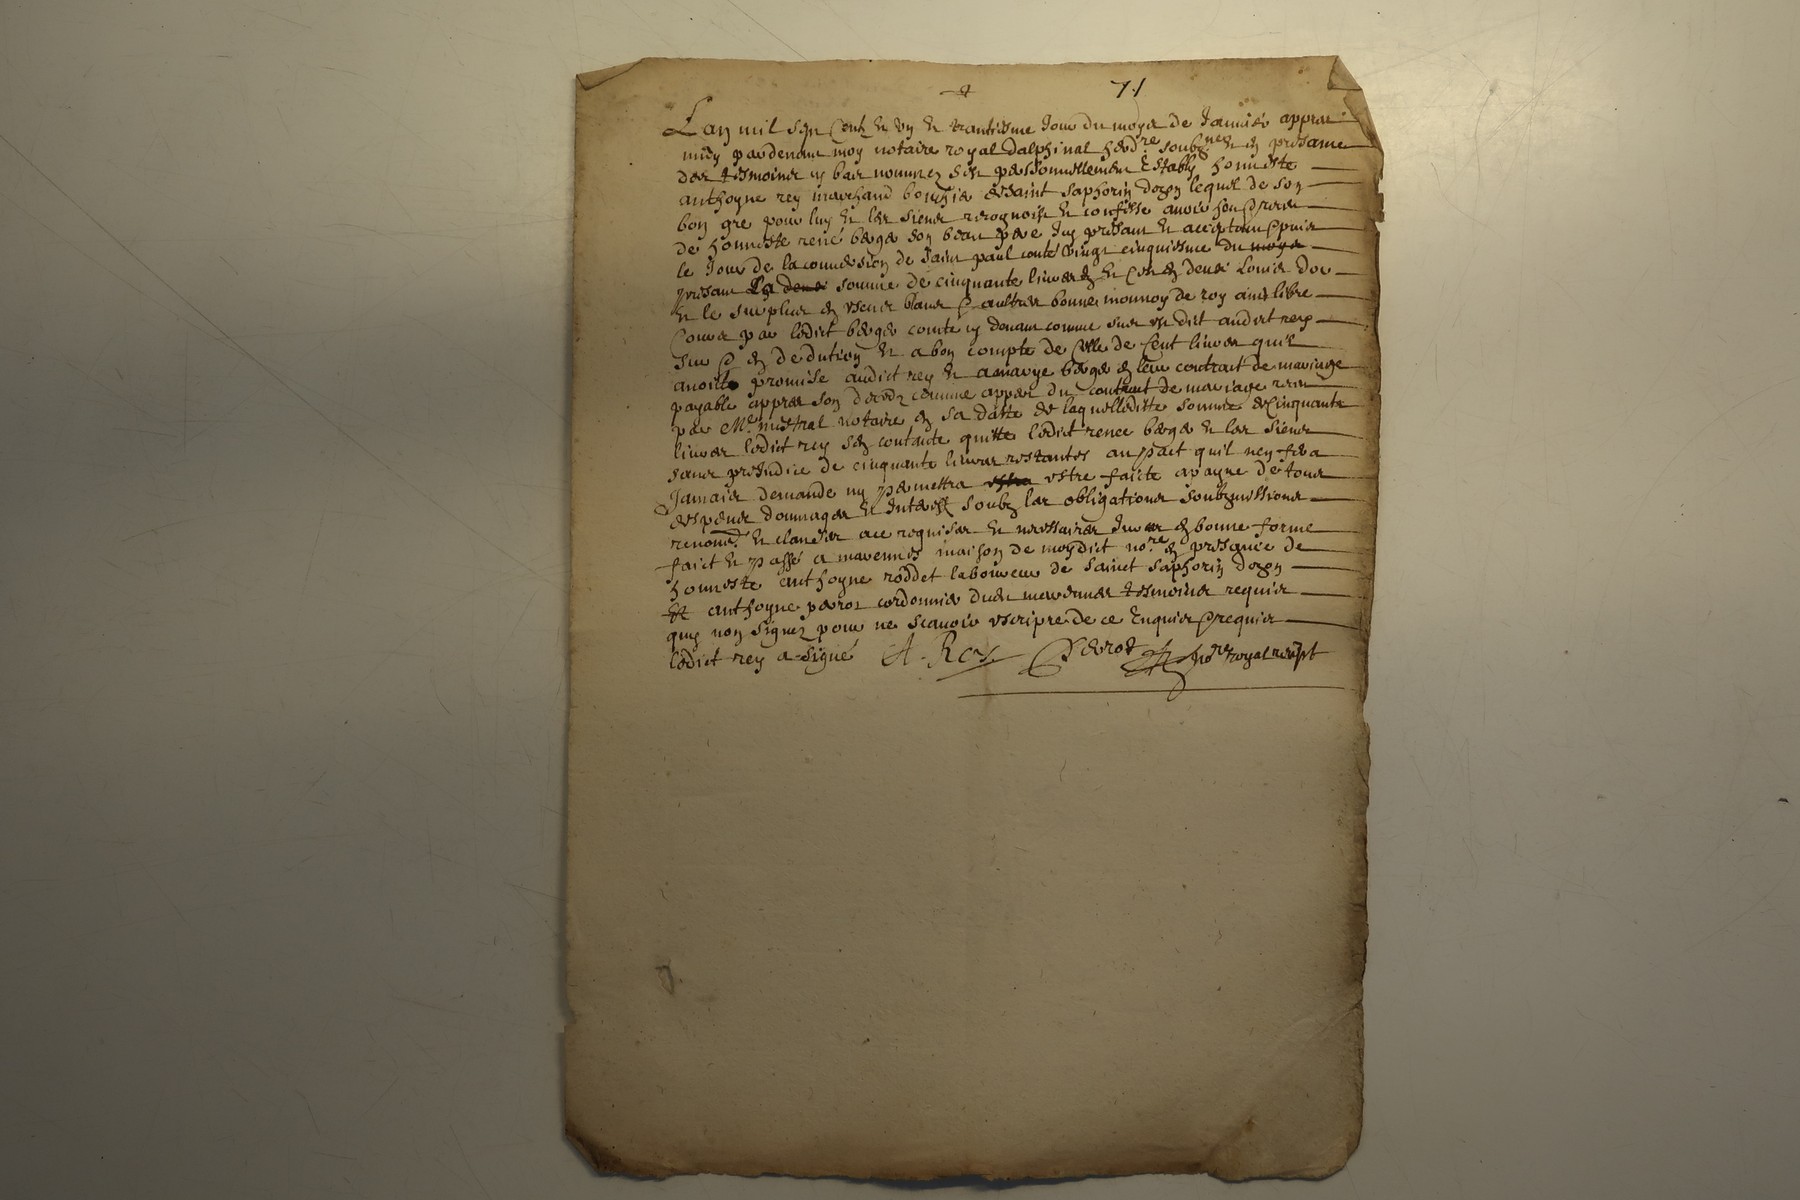 71
L'an mil sept cent et un et trantiesme jour du moys de janvier appres
midy pardevant moy notaire royal dalphinal heredre soubzne et en presance
des tesmoins cy bas nommez s'est personnellement estably honneste
anthoyne rey marchand de saint saphorin dozon lequel de son
bon gre pour luy et les siens recognoist et confesse avoir heu et receu
de honneste rené berger son beau pere icy presant et acceptant
le jour de la conversion de saint paul conté vingt cinquiesme du moys
presant la somme de cinquante livres et en deux Louis dor
et le surplus en escus blanc et aultres bonne monnoy de roy
par ledict berger comte cy devant comme sus est dit audict rey
sur et en dedution et a bon compte de celle de cent livres quil
avoit promise audict rey et a marye berger en leur contrait de mariage
payable appres son deces comme appert du contrait de mariage receu
par Me mistral notaire en sa datte de laquelleditte somme de cinquante
livres ledict rey s'est contante quitte ledict rene berger et les siens
sans prejudice de cinquante livres restantes au pact quil ney fera
jamais demande ny permettra estre estre faicte a payne de tous
despens dommages et interest soubz les obligations soubzmissions
renond et clauses a ce requises et necessaires en bonne forme
faict et passé a marennes maison de moydict nore en presance de
honneste anthoyne roddet laboureur de sainct saphorin dozon
et anthoyne perrot cordonnier dudt marennes tesmoins requis
quy non signez pour ne scavoir escripre de ce enquis et requis
ledict rey a signé A. Rey Perrot nore royal recept